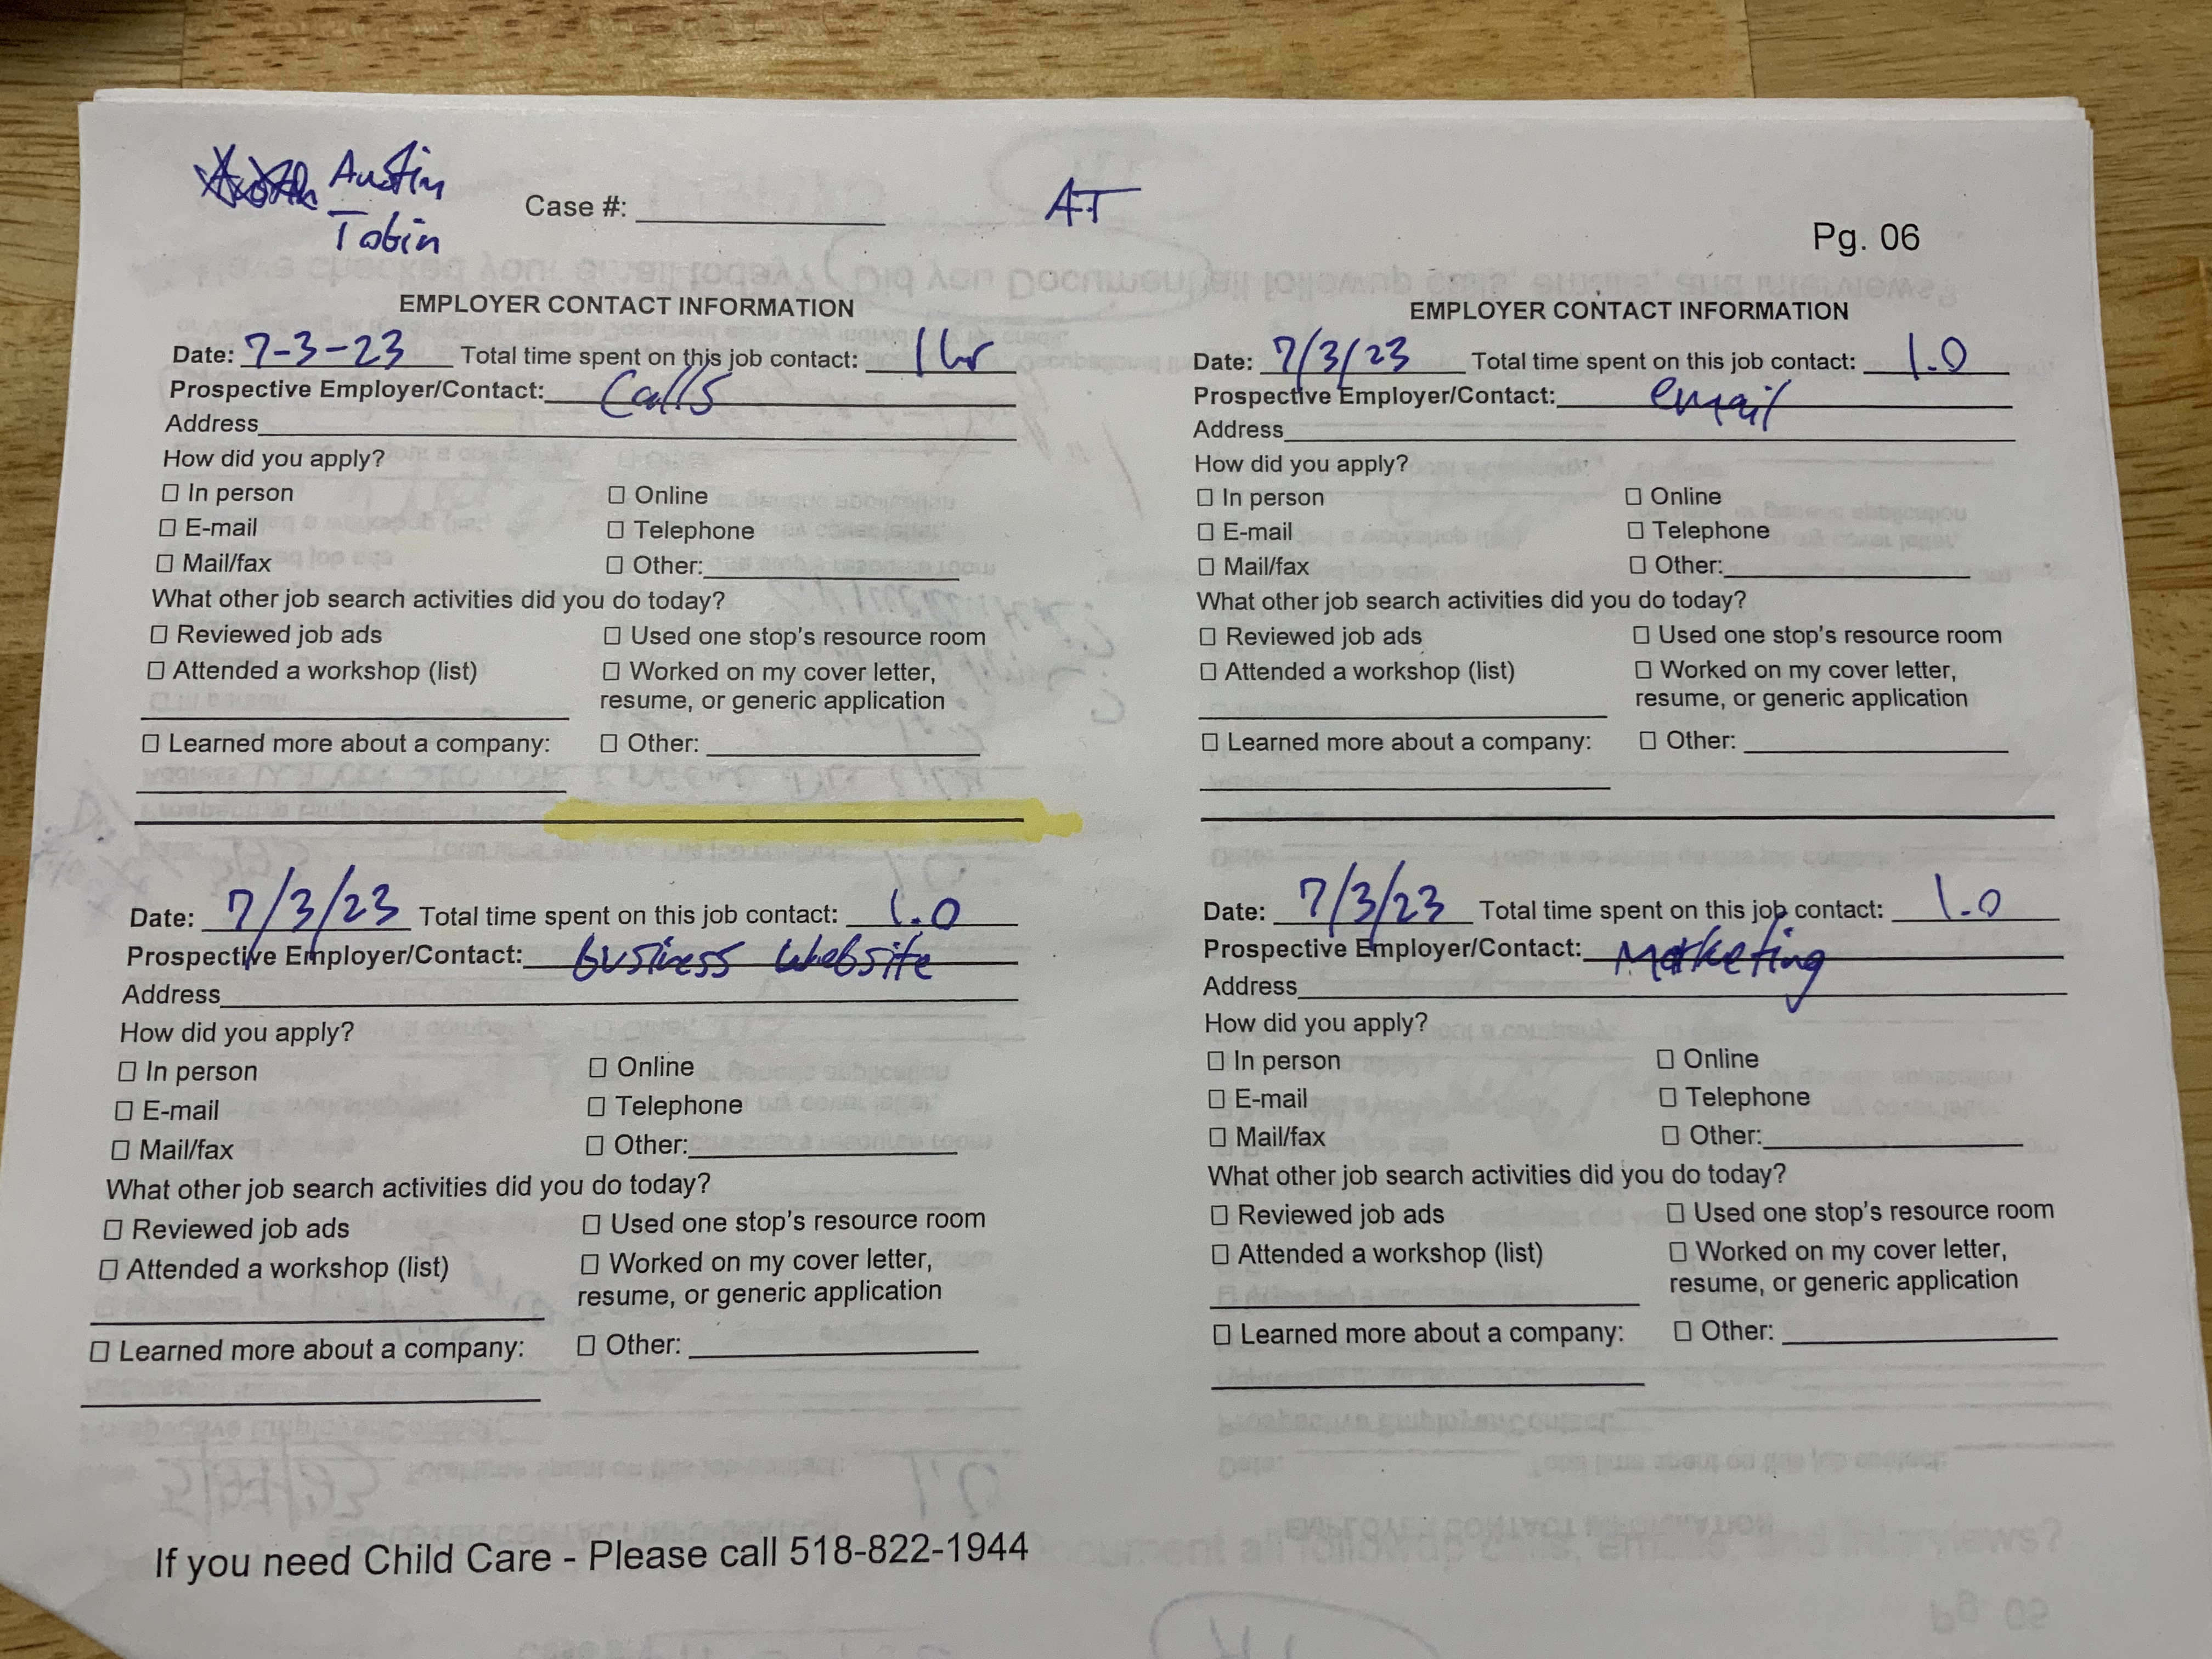 Austin
Tobin
Case #:
AT
Pg. 06
EMPLOYER CONTACT INFORMATION
Date: 7-3-23 Total time spent on this job contact: 1 hr
Prospective Employer/Contact: Calls
Address
How did you apply?
☐ In person ☐ Online
☐ E-mail ☐ Telephone
☐ Mail/fax ☐ Other:
What other job search activities did you do today?
☐ Reviewed job ads ☐ Used one stop's resource room
☐ Attended a workshop (list) ☐ Worked on my cover letter,
resume, or generic application
☐ Learned more about a company: ☐ Other:
EMPLOYER CONTACT INFORMATION
Date: 7/3/23 Total time spent on this job contact: 1.0
Prospective Employer/Contact: email
Address
How did you apply?
☐ In person ☐ Online
☐ E-mail ☐ Telephone
☐ Mail/fax ☐ Other:
What other job search activities did you do today?
☐ Reviewed job ads ☐ Used one stop's resource room
☐ Attended a workshop (list) ☐ Worked on my cover letter,
resume, or generic application
☐ Learned more about a company: ☐ Other:
Date: 7/3/23 Total time spent on this job contact: 1.0
Prospective Employer/Contact: business website
Address
How did you apply?
☐ In person ☐ Online
☐ E-mail ☐ Telephone
☐ Mail/fax ☐ Other:
What other job search activities did you do today?
☐ Reviewed job ads ☐ Used one stop's resource room
☐ Attended a workshop (list) ☐ Worked on my cover letter,
resume, or generic application
☐ Learned more about a company: ☐ Other:
Date: 7/3/23 Total time spent on this job contact: 1.0
Prospective Employer/Contact: Marketing
Address
How did you apply?
☐ In person ☐ Online
☐ E-mail ☐ Telephone
☐ Mail/fax ☐ Other:
What other job search activities did you do today?
☐ Reviewed job ads ☐ Used one stop's resource room
☐ Attended a workshop (list) ☐ Worked on my cover letter,
resume, or generic application
☐ Learned more about a company: ☐ Other:
If you need Child Care - Please call 518-822-1944